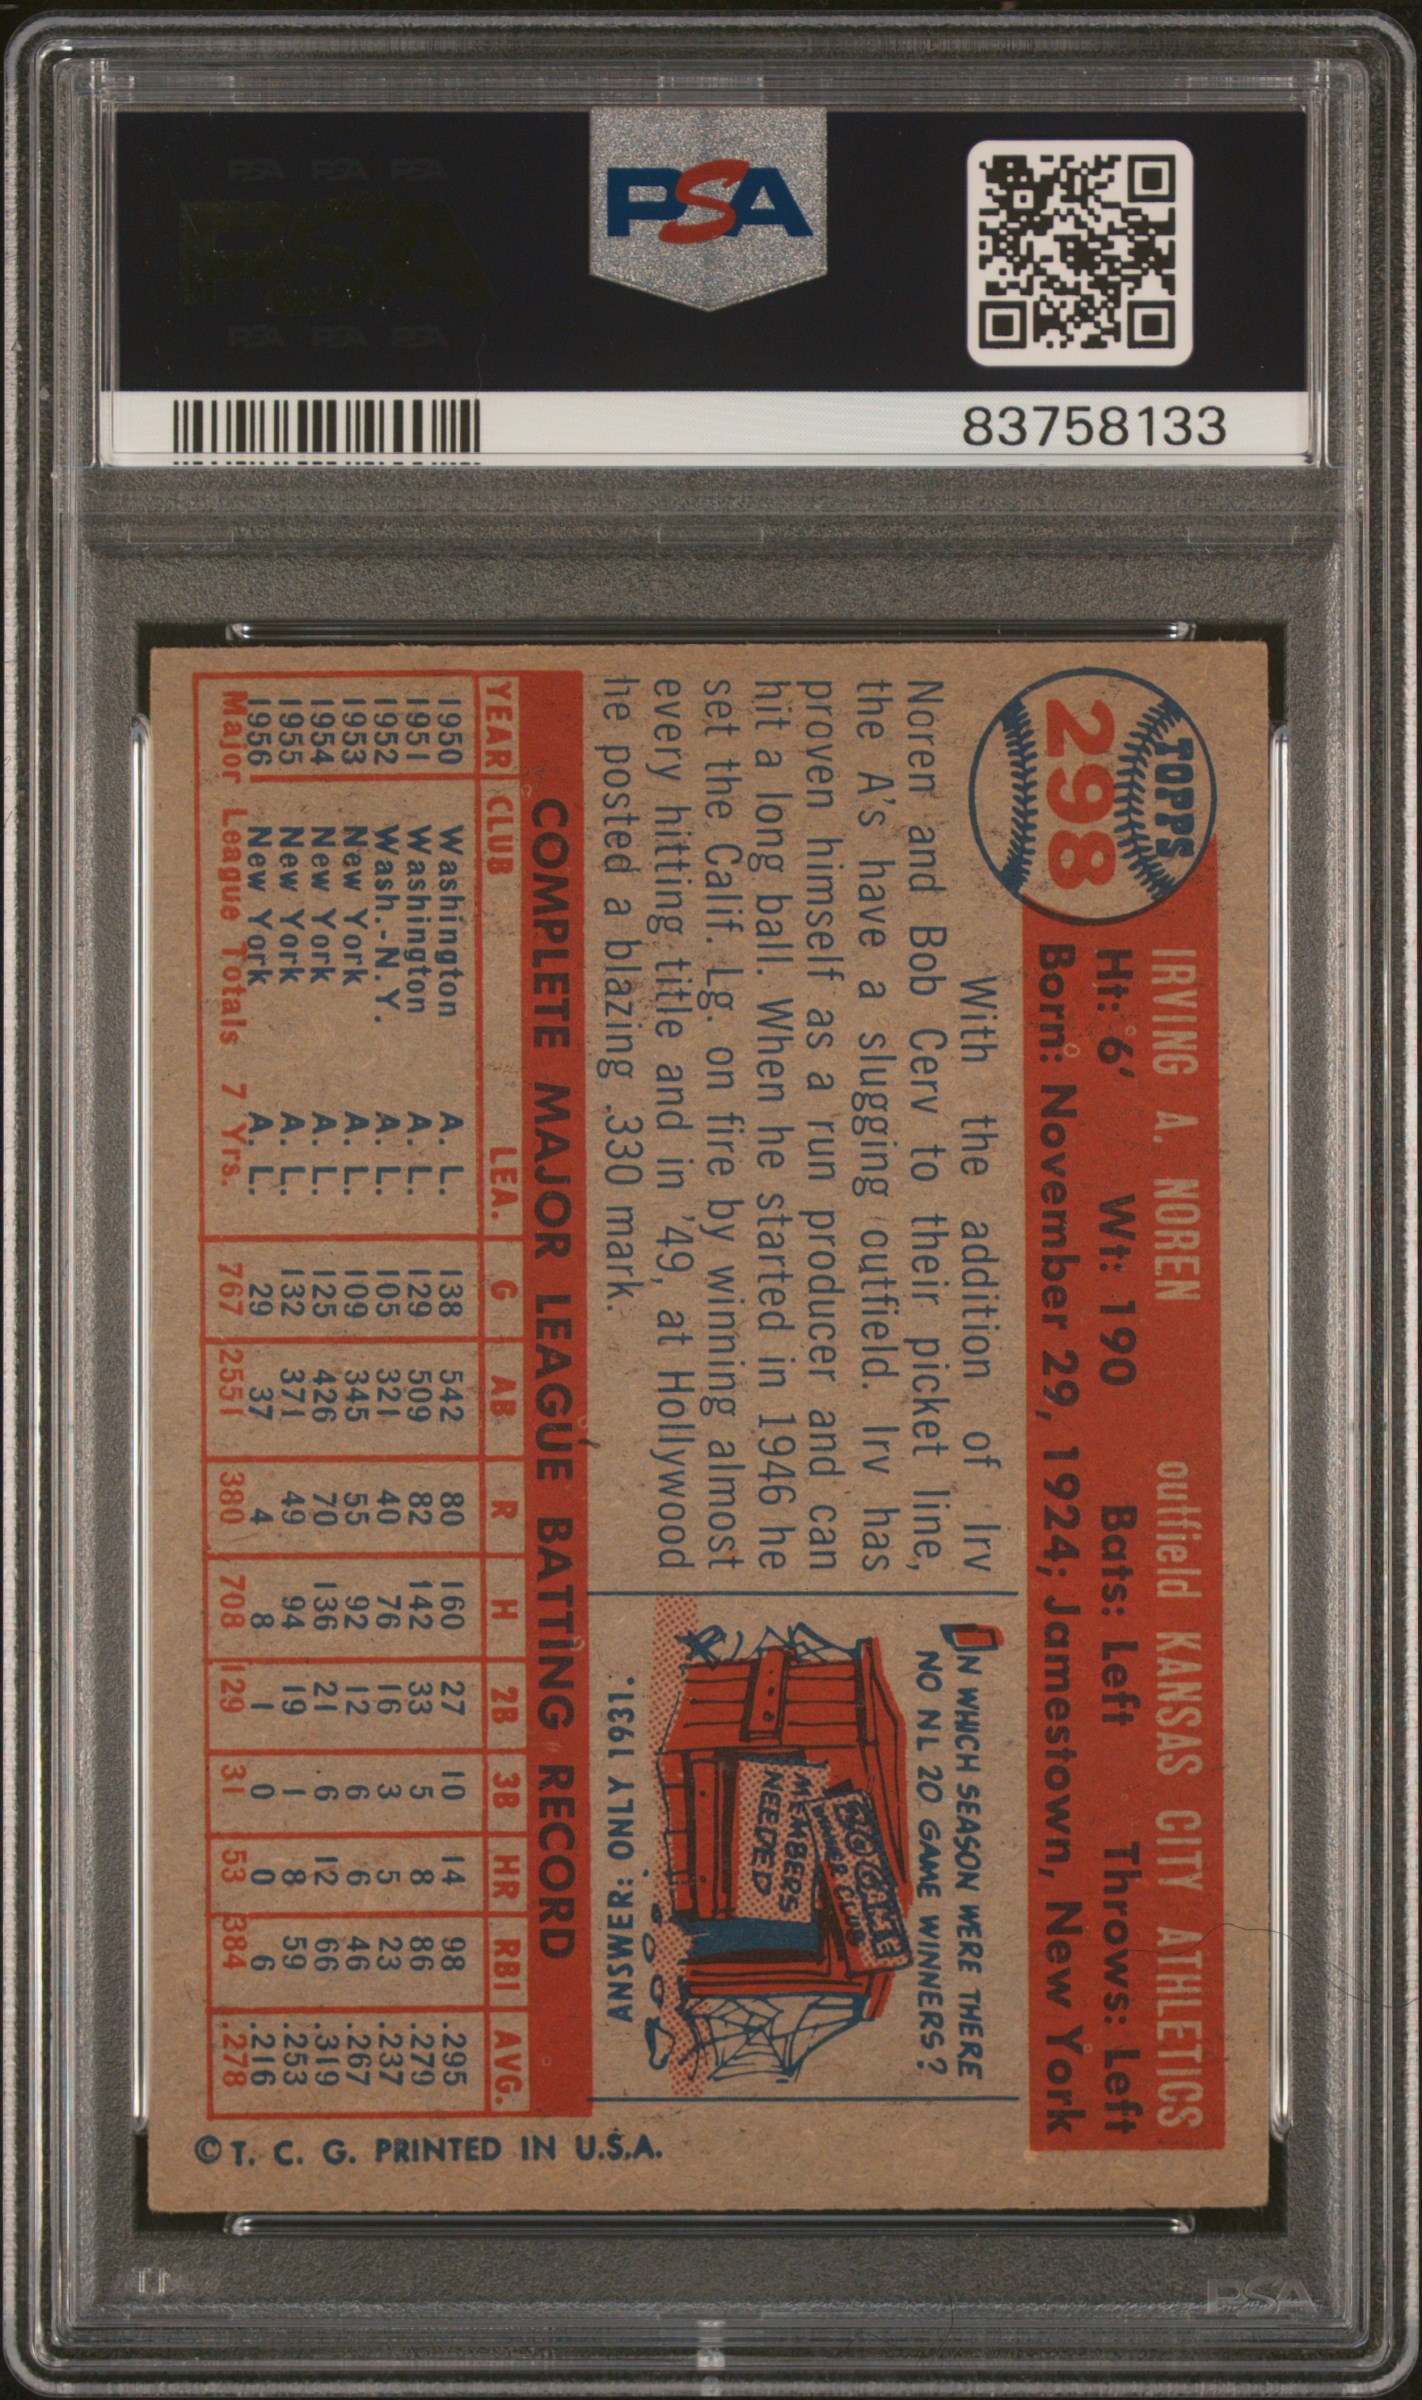 PSA PSA PSA
PSA
PSA PSA PSA
PSA
83758133
TOPPS
298
IRVING A. NOREN outfield KANSAS CITY ATHLETICS
Ht: 6' Wt: 190 Bats: Left Throws: Left
Born: November 29, 1924; Jamestown, New York
With the addition of Irv
Noren and Bob Cerv to their picket line,
the A's have a slugging outfield. Irv has
proven himself as a run producer and can
hit a long ball. When he started in 1946 he
set the Calif. Lg. on fire by winning almost
every hitting title and in '49, at Hollywood
he posted a blazing .330 mark.
IN WHICH SEASON WERE THERE
NO NL 20 GAME WINNERS?
20 GAME
WINNER CLUB
MEMBERS
NEEDED
ANSWER: ONLY 1931.
COMPLETE MAJOR LEAGUE BATTING RECORD
YEAR CLUB LEA. G AB R H 2B 3B HR RBI AVG.
1950 Washington A. L. 138 542 80 160 27 10 14 98 .295
1951 Washington A. L. 129 509 82 142 33 5 8 86 .279
1952 Wash.-N.Y. A. L. 105 321 40 76 16 3 5 23 .237
1953 New York A. L. 109 345 55 92 12 6 6 46 .267
1954 New York A. L. 125 426 70 136 21 6 12 66 .319
1955 New York A. L. 132 371 49 94 19 1 8 59 .253
1956 New York A. L. 29 37 4 8 1 0 0 6 .216
Major League Totals 7 Yrs. 767 2551 380 708 129 31 53 384 .278
© T. C. G. PRINTED IN U.S.A.
PSA